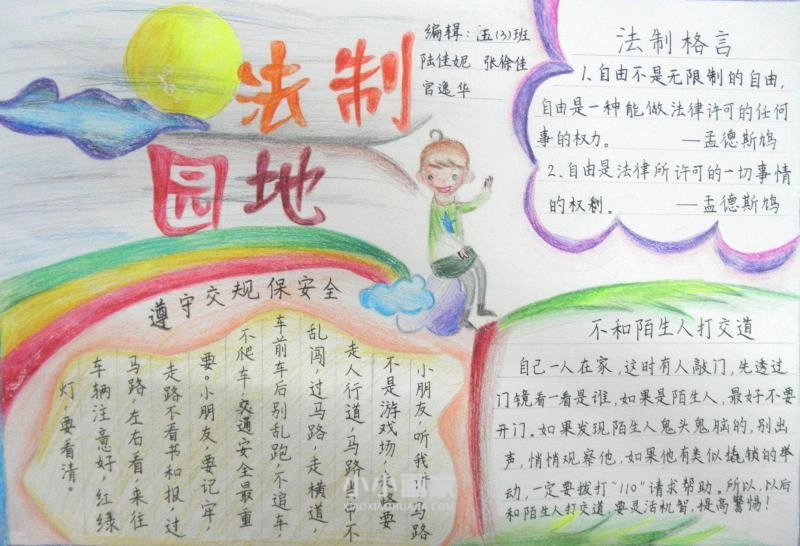 法制
园地
编辑：五(3)班
陆佳妮 张徐佳
宫逸华
法制格言
1.自由不是无限制的自由,
自由是一种能做法律许可的任何
事的权力。 —孟德斯鸠
2.自由是法律所许可的一切事情
的权利。 —孟德斯鸠
遵守交规保安全
小朋友,听我讲,马路
不是游戏场,走路要
走人行道,马路当中不
乱闯,过马路,走横道,
车前车后别乱跑,不追车,
不爬车,交通安全最重
要。小朋友,要记牢,
走路不看书和报,过
马路,左右看,来往
车辆注意好,红绿
灯,要看清。
不和陌生人打交道
自己一人在家,这时有人敲门,先透过
门镜看一看是谁,如果是陌生人,最好不要
开门。如果发现陌生人鬼头鬼脑的,别出
声,悄悄观察他,如果他有类似撬锁的举
动,一定要拨打"110"请求帮助。所以,以后
和陌生人打交道,要灵活机智,提高警惕!
小小画家
XIAOXIAOHUAJIA.COM